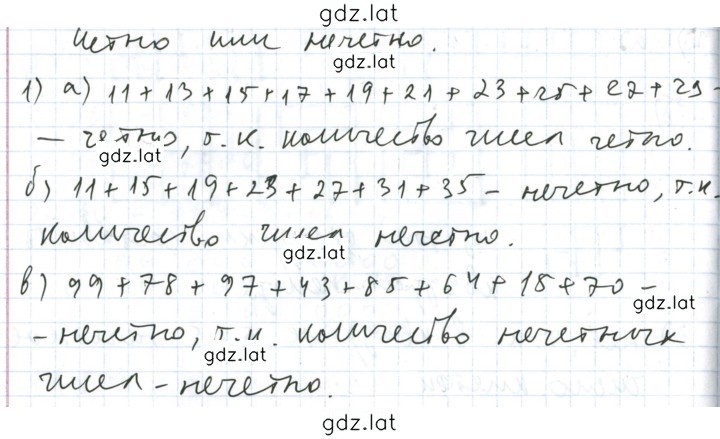 gdz.lat
четно или нечетно.
gdz.lat
1) а) 11 + 13 + 15 + 17 + 19 + 21 + 23 + 25 + 27 + 29 -
- четно, т.к. количество чисел четно.
gdz.lat
б) 11 + 15 + 19 + 23 + 27 + 31 + 35 - нечетно, т.к.
количество чисел нечетно.
gdz.lat
в) 99 + 78 + 97 + 43 + 85 + 64 + 18 + 70 -
gdz.lat
- нечетно, т.к. количество нечетных
gdz.lat
чисел - нечетно.
gdz.lat